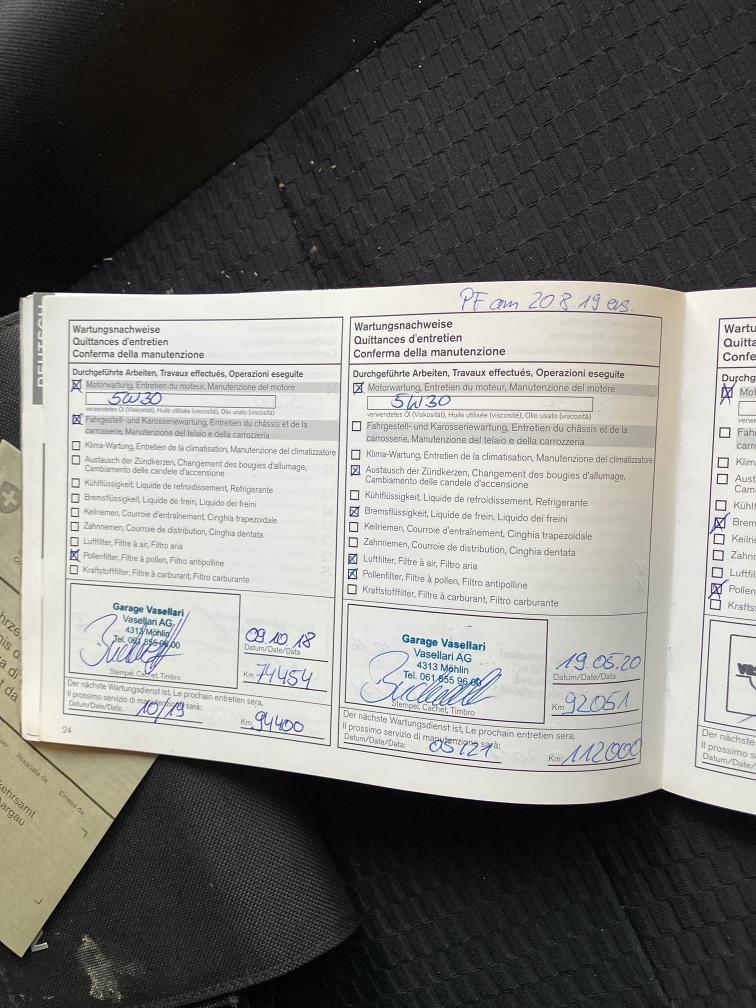 PF am 20.8.19 ers.
DEUTSCH
Wartungsnachweise
Quittances d'entretien
Conferma della manutenzione
Durchgeführte Arbeiten, Travaux effectués, Operazioni eseguite
Motorwartung, Entretien du moteur, Manutenzione del motore
5W30
verwendetes Öl (Viskosität), Huile utilisée (viscosité), Olio usato (viscosità)
Fahrgestell- und Karosseriewartung, Entretien du châssis et de la
carrosserie, Manutenzione del telaio e della carrozzeria
Klima-Wartung, Entretien de la climatisation, Manutenzione del climatizzatore
Austausch der Zündkerzen, Changement des bougies d'allumage,
Cambiamento delle candele d'accensione
Kühlflüssigkeit, Liquide de refroidissement, Refrigerante
Bremsflüssigkeit, Liquide de frein, Liquido dei freini
Keilriemen, Courroie d'entraînement, Cinghia trapezoidale
Zahnriemen, Courroie de distribution, Cinghia dentata
Luftfilter, Filtre à air, Filtro aria
Pollenfilter, Filtre à pollen, Filtro antipolline
Kraftstofffilter, Filtre à carburant, Filtro carburante
Garage Vasellari
Vasellari AG
4313 Möhlin
Tel. 061 855 96 00
Stempel, Cachet, Timbro
09.10.18
Datum/Date/Data
Km 74454
Der nächste Wartungsdienst ist, Le prochain entretien sera,
Il prossimo servizio di manutenzione sarà:
Datum/Date/Data: 10/19
Km: 94400
24
Wartungsnachweise
Quittances d'entretien
Conferma della manutenzione
Durchgeführte Arbeiten, Travaux effectués, Operazioni eseguite
Motorwartung, Entretien du moteur, Manutenzione del motore
5W30
verwendetes Öl (Viskosität), Huile utilisée (viscosité), Olio usato (viscosità)
Fahrgestell- und Karosseriewartung, Entretien du châssis et de la
carrosserie, Manutenzione del telaio e della carrozzeria
Klima-Wartung, Entretien de la climatisation, Manutenzione del climatizzatore
Austausch der Zündkerzen, Changement des bougies d'allumage,
Cambiamento delle candele d'accensione
Kühlflüssigkeit, Liquide de refroidissement, Refrigerante
Bremsflüssigkeit, Liquide de frein, Liquido dei freini
Keilriemen, Courroie d'entraînement, Cinghia trapezoidale
Zahnriemen, Courroie de distribution, Cinghia dentata
Luftfilter, Filtre à air, Filtro aria
Pollenfilter, Filtre à pollen, Filtro antipolline
Kraftstofffilter, Filtre à carburant, Filtro carburante
Garage Vasellari
Vasellari AG
4313 Möhlin
Tel. 061 855 96 00
Stempel, Cachet, Timbro
19.05.20
Datum/Date/Data
Km 92051
Der nächste Wartungsdienst ist, Le prochain entretien sera,
Il prossimo servizio di manutenzione sarà:
Datum/Date/Data: 05/21
Km: 112000
Wartu
Quitta
Confe
Durchg
Mot
verwe
Fahr
carre
Klim
Aust
Cam
Kühlf
Brem
Keilrie
Zahnr
Luftfil
Pollen
Krafts
Der nächste
Il prossimo
Datum/Date/
Riasciata da
Emess da
kehrsamt
argau